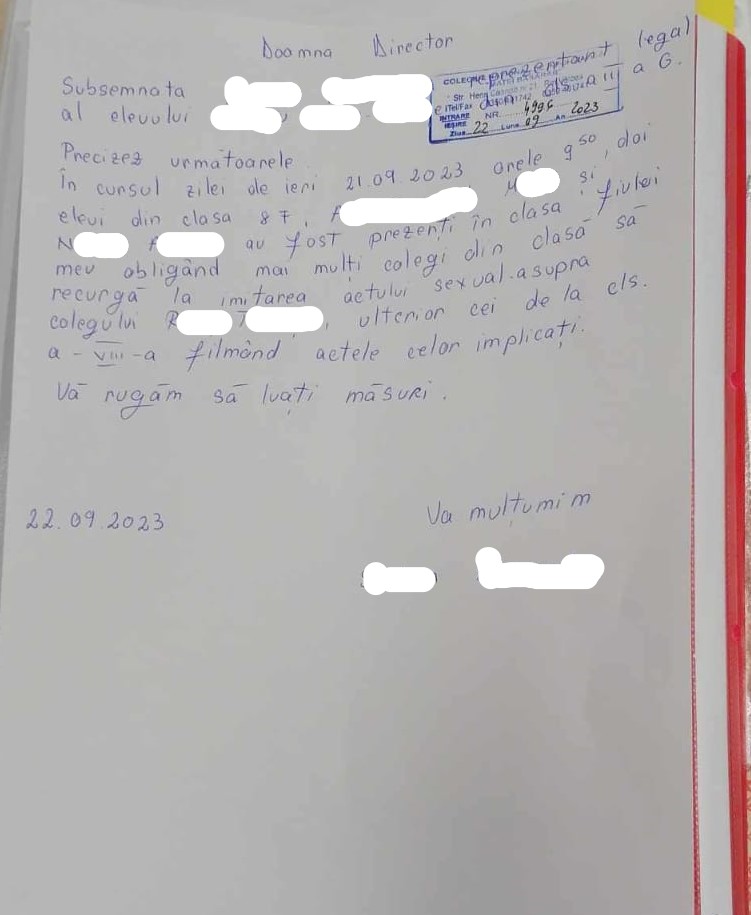 Doamna Director
Subsemnata reprezentant legal
al elevului din clasa a II a G.
COLEGIUL
Str.
Tel/Fax
INTRARE NR. 4996
IEȘIRE
Ziua 22 Luna 09 An 2023
Precizez următoarele
În cursul zilei de ieri 21.09.2023, orele 9 50, doi
elevi din clasa 8 F, A M și
N A au fost prezenți în clasa fiului
meu obligând mai mulți colegi din clasă să
recurgă la imitarea actului sexual asupra
colegului R T, ulterior cei de la cls.
a - VIII - a filmând actele celor implicați.
Vă rugăm să luați măsuri.
22.09.2023
Va mulțumim